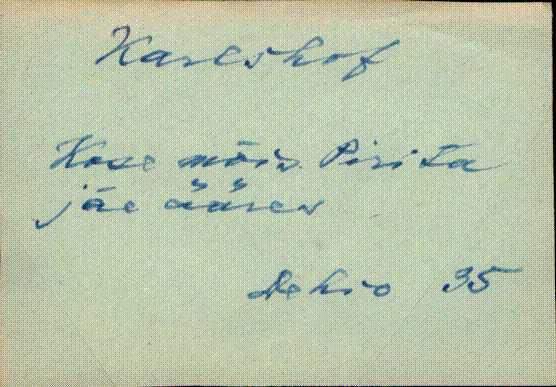 Karlshof
Kose mõis Pirita
jäe ääres
Dehio 35